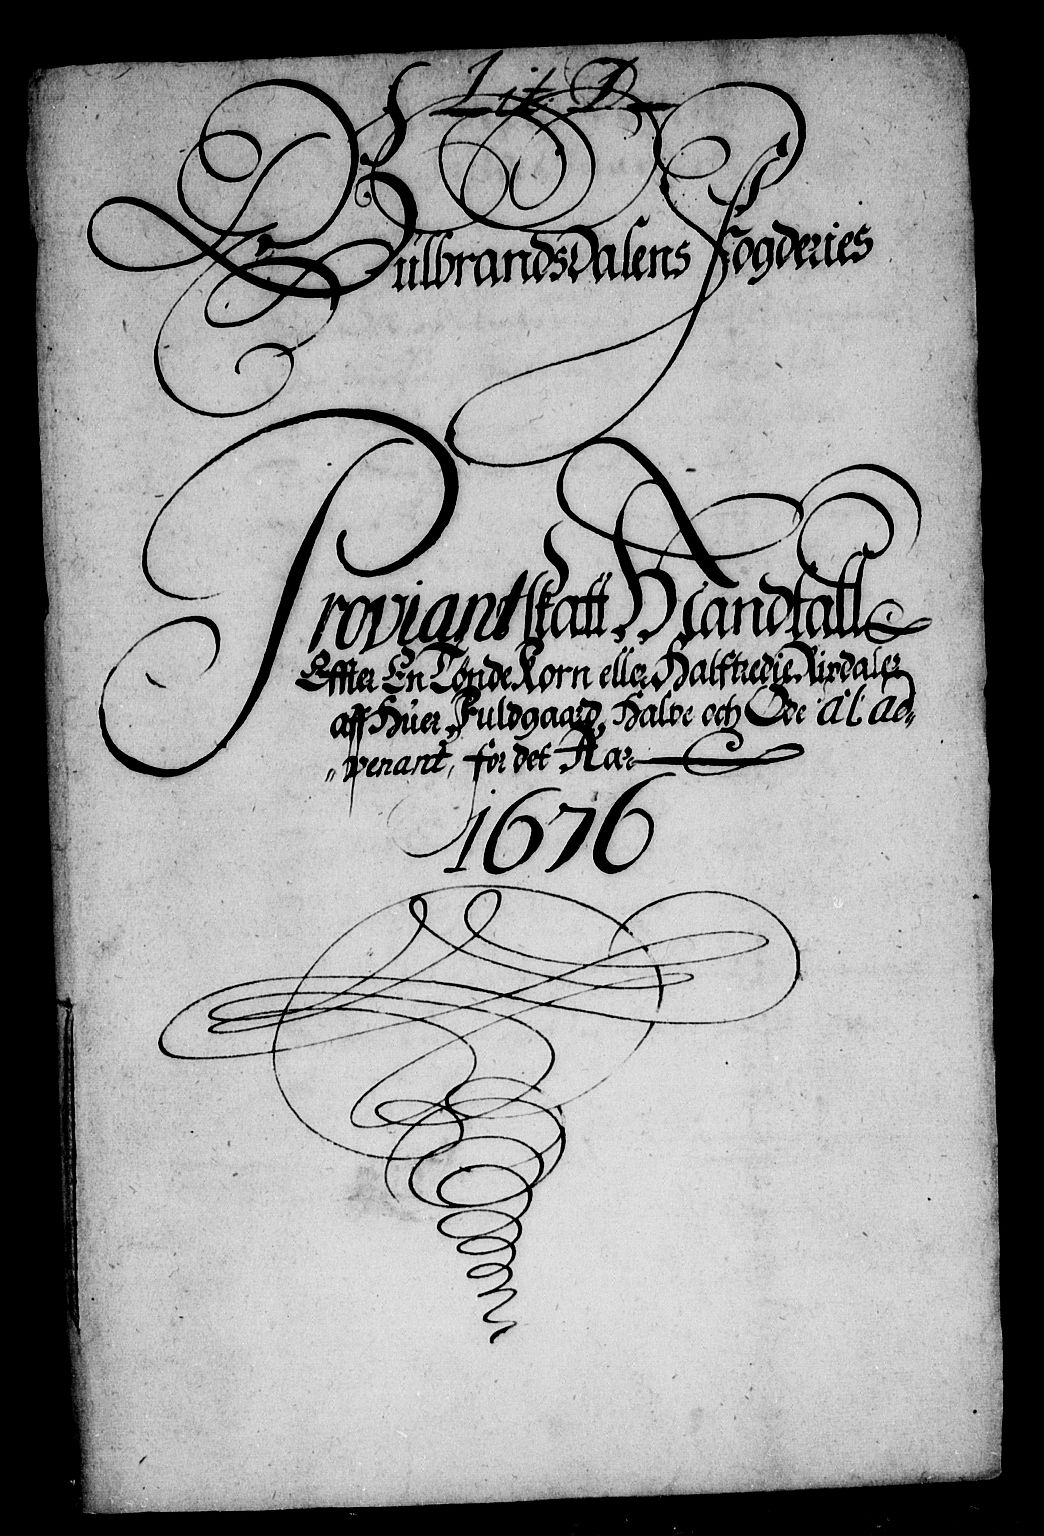 Lit. D
Gulbrandsdalens Fogderies
Proviantskatt Mandtall
Effter En Tønde Korn eller Halftredie Rixdaler
aff Huer Fuldgaard, Halve och Øde al ad-
venant, for det Aar
1676